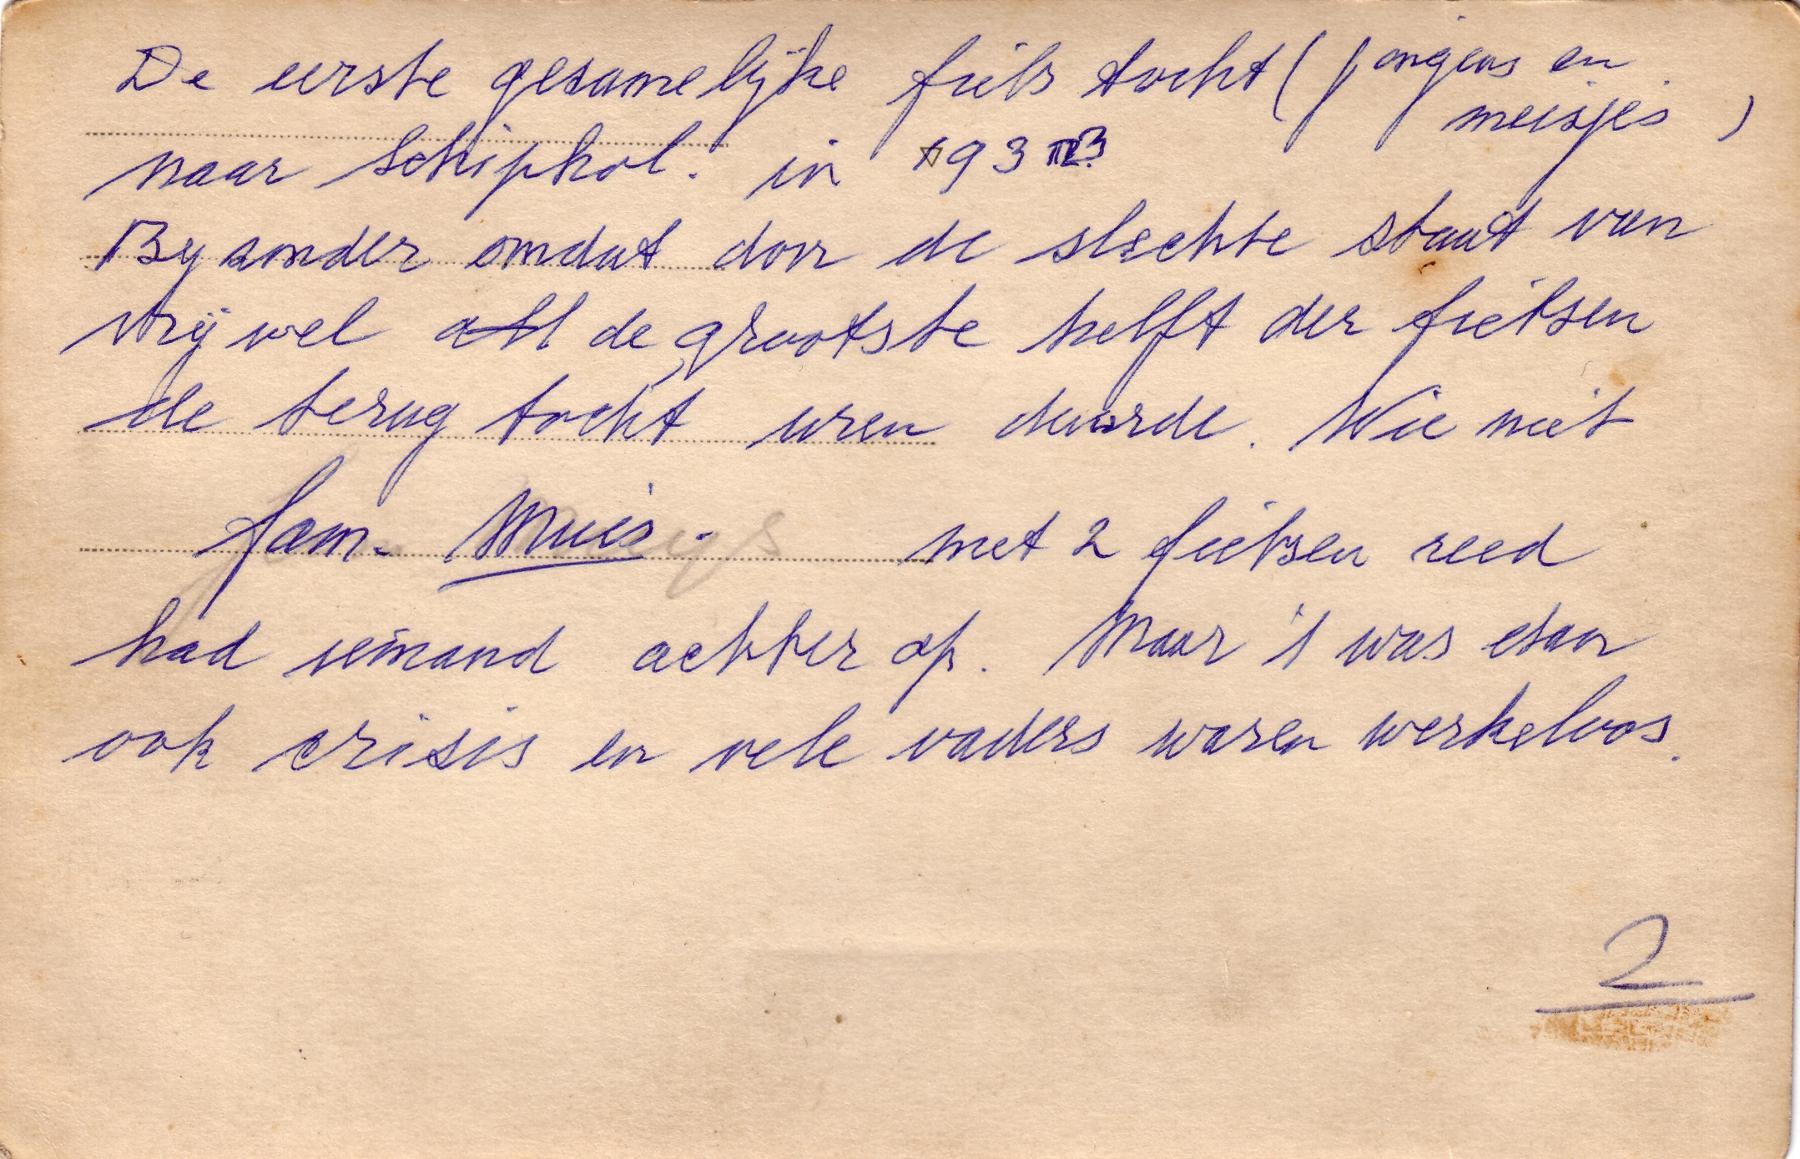 De eerste gesamelijke fiets tocht (jongens en
meisjes)
naar Schiphol. in 193
Byzonder omdat door de slechte staat van
vrijwel de grootste helft der fietsen
de terug tocht uren duurde. Wie niet
fam. Muis. met 2 fietsen reed
had iemand achter op. Maar 't was
ook crisis en vele vaders waren werkeloos.
2